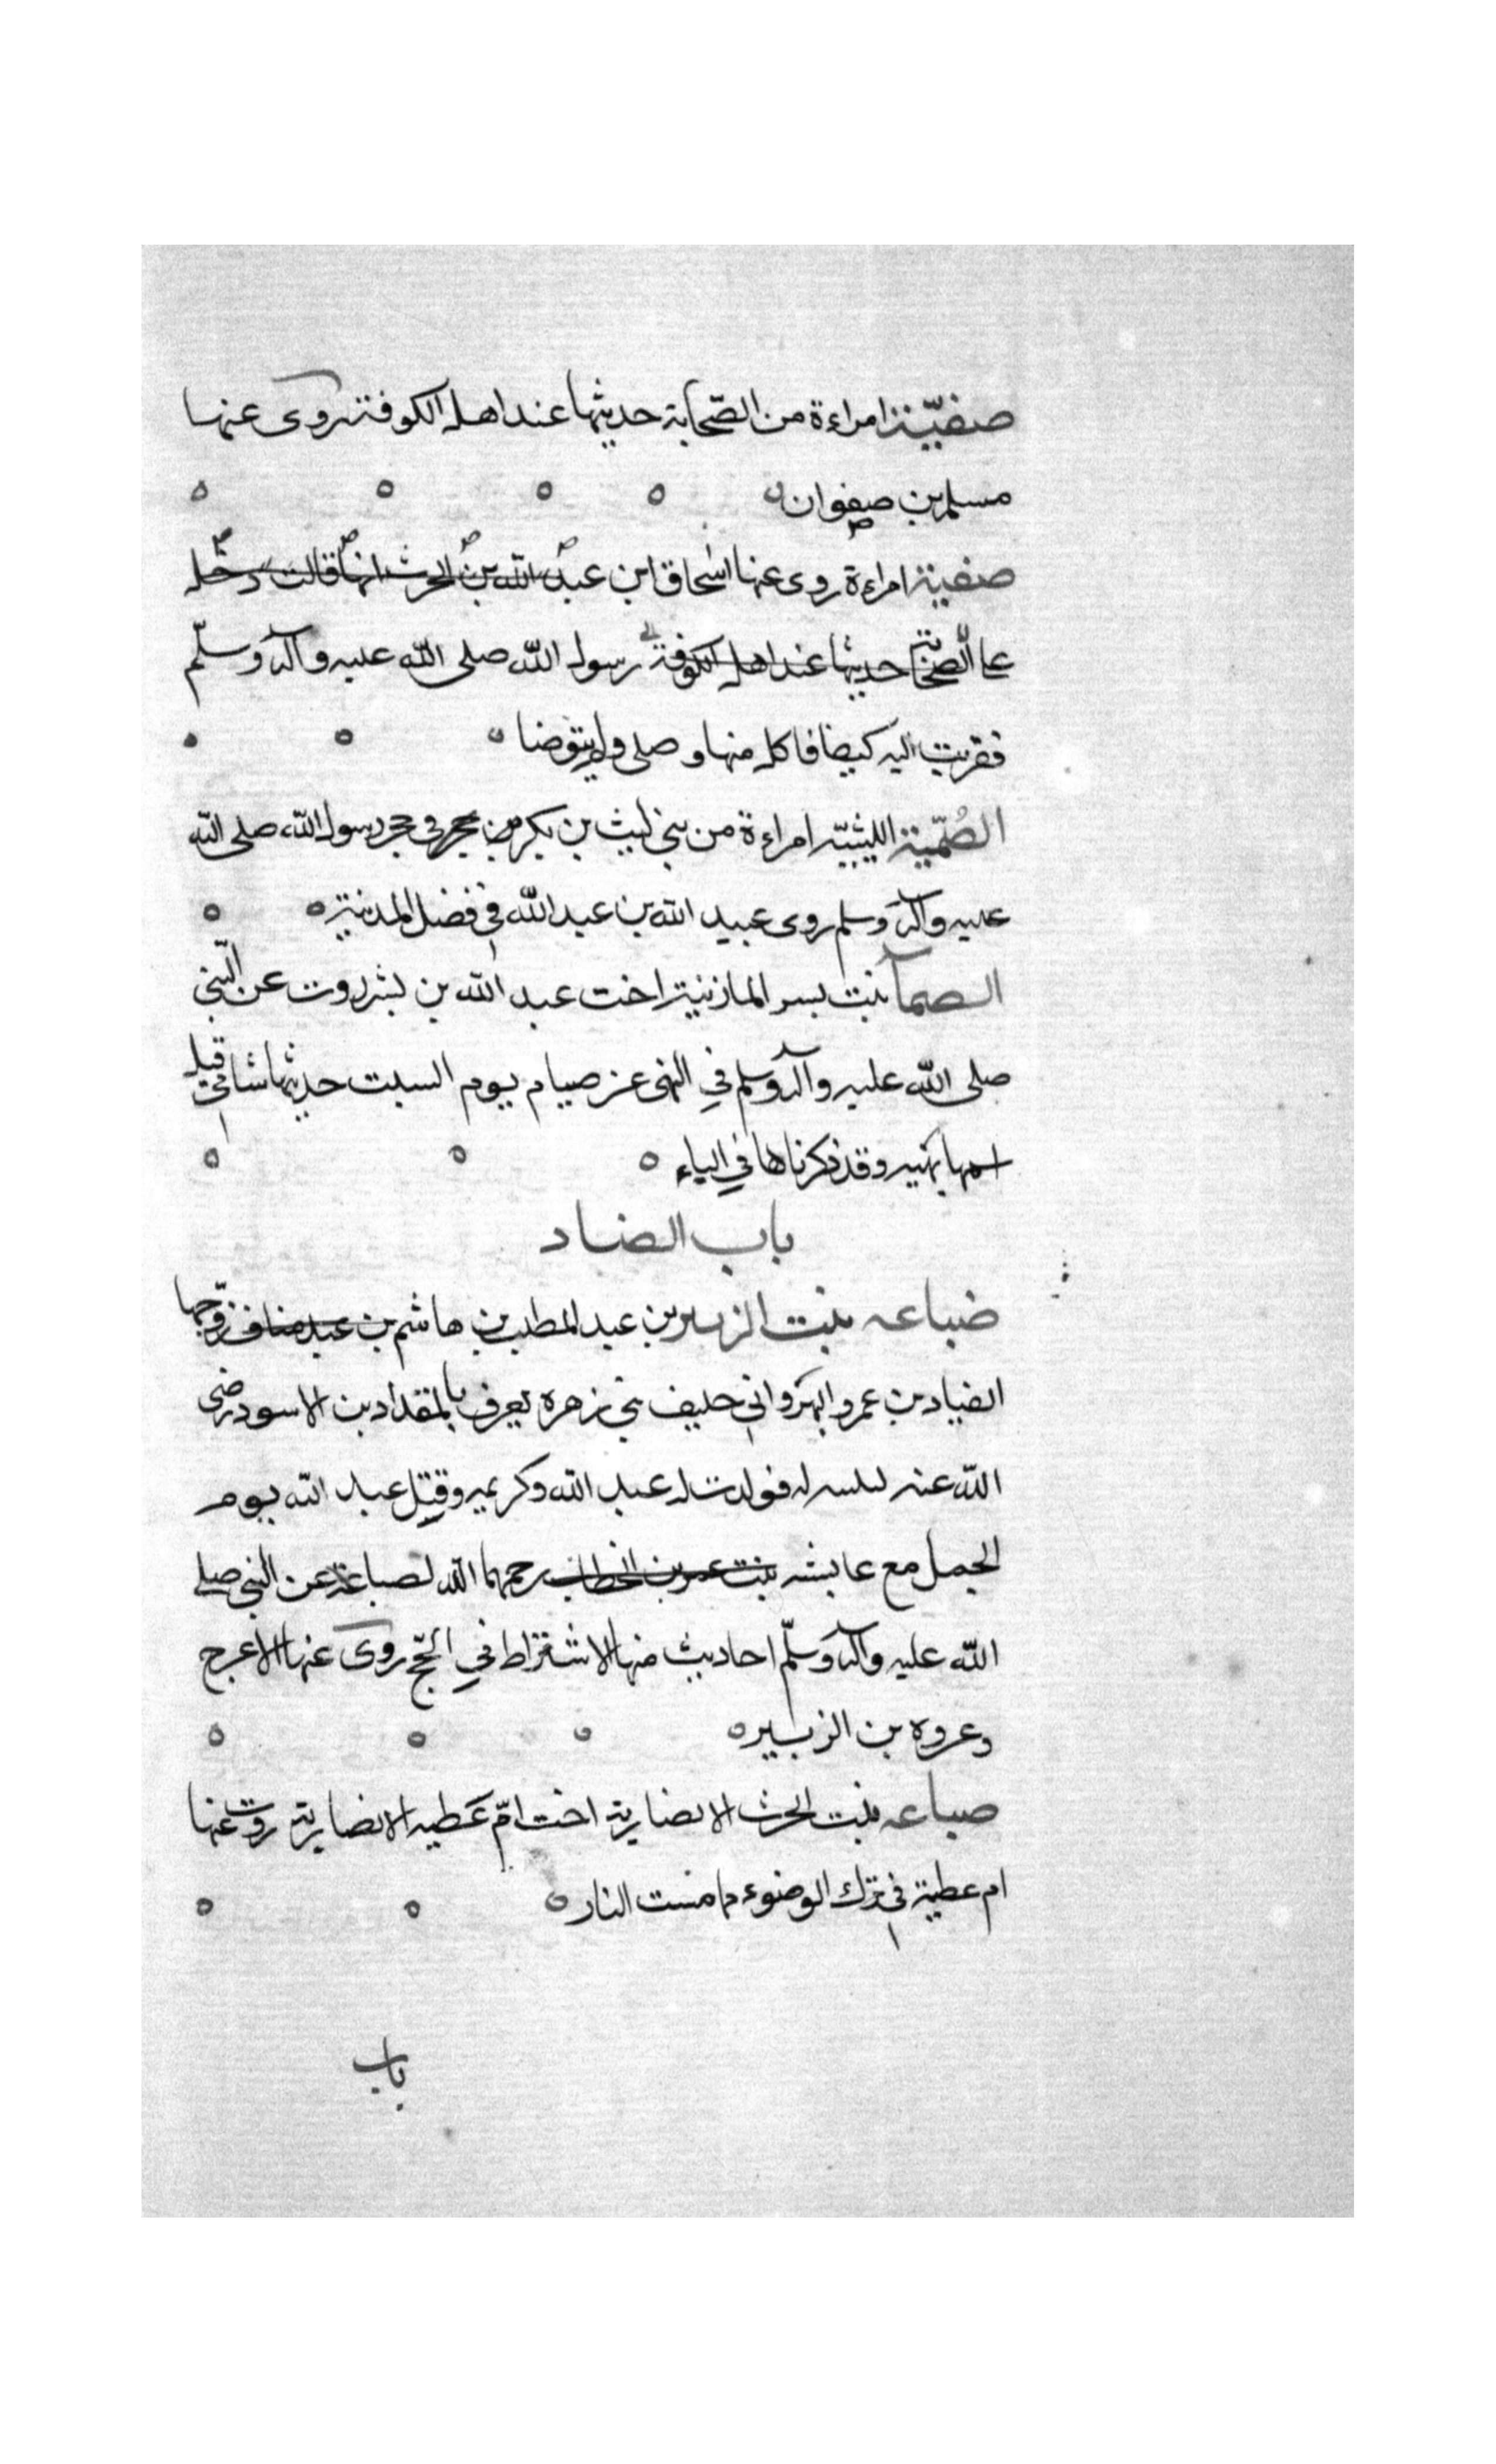 صفيّة امراءة من الصّحابة حديثها عند اهل الكوفة روى عنها
مسلم بن صفوان
صفية امراءة روى عنها اسحاق ابن عبد الله بن الحرث انها قالت دخل
على الصحابة حديثها عند اهل الكوفة رسول الله صلى الله عليه وآله وسلّم
فقربت اليه كتفا فاكل منها و صلى ولم يتوضا
الصُمّيتة الليثيّة امراءة من بني ليث بن بكر من في حجر رسول الله صلى الله
عليه وآله وسلم روى عبيد الله بن عبد الله في فضل المدينة
الصمآ بنت بسر المازنية اخت عبد الله بن بشر روت عن النّبي
صلى الله عليه وآله وسلم في النهى عن صيام يوم السبت حديثها شامي قيل
اسمها بهيه وقد ذكرناها في الباء
باب الضاد
ضباعه بنت الزبير بن عبد المطلب بن هاشم بن عبد مناف زوّجها
المقداد بن عمرو البهرواني حليف بني زهرة يعرف بالمقداد بن الاسود رضى
الله عنه فولدت له عبد الله وكريمه وقتل عبد الله يوم
الجمل مع عايشه بنت عمر بن الخطاب رحمهما الله لضباعة عن النبي صلى
الله عليه وآله وسلّم احاديث منها الاشتراط في الحّج روى عنها الاعرج
وعروه بن الزبير
ضباعه بنت الحرث الانصارية اخت امّ عطيه الانصارية روت عنها
ام عطية في ترك الوضوء مما مست النار
باب